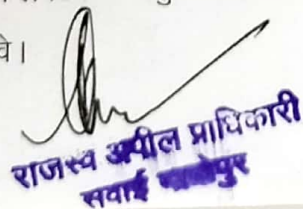 वे।
राजस्व अपील प्राधिकारी
सवाई माधोपुर